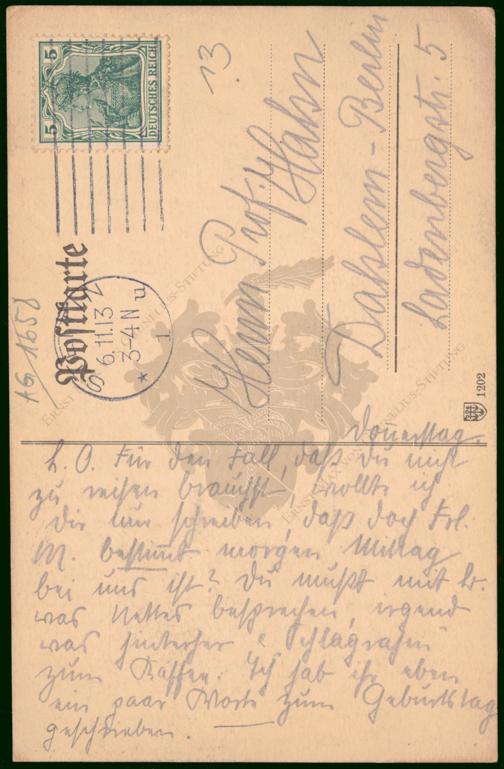 Postkarte
DEUTSCHES REICH
5
5
13
AG 1658
6.11.13
3-4 N
1
Herrn Prof. Hahn
Dahlem-Berlin
Ladenbergstr. 5
1202
Donnerstag.
L. O. Für den Fall, daß Du nicht
zu reisen brauchst, wollte ich
Dir nur schreiben, daß doch Frl.
M. bestimmt morgen Mittag
bei uns ist? Du mußt mit
was Nettes besprechen, irgend
was hinterher Schlagrahm
zum Kaffee. Ich hab ihr eben
ein paar Worte zum Geburtstag
geschrieben.